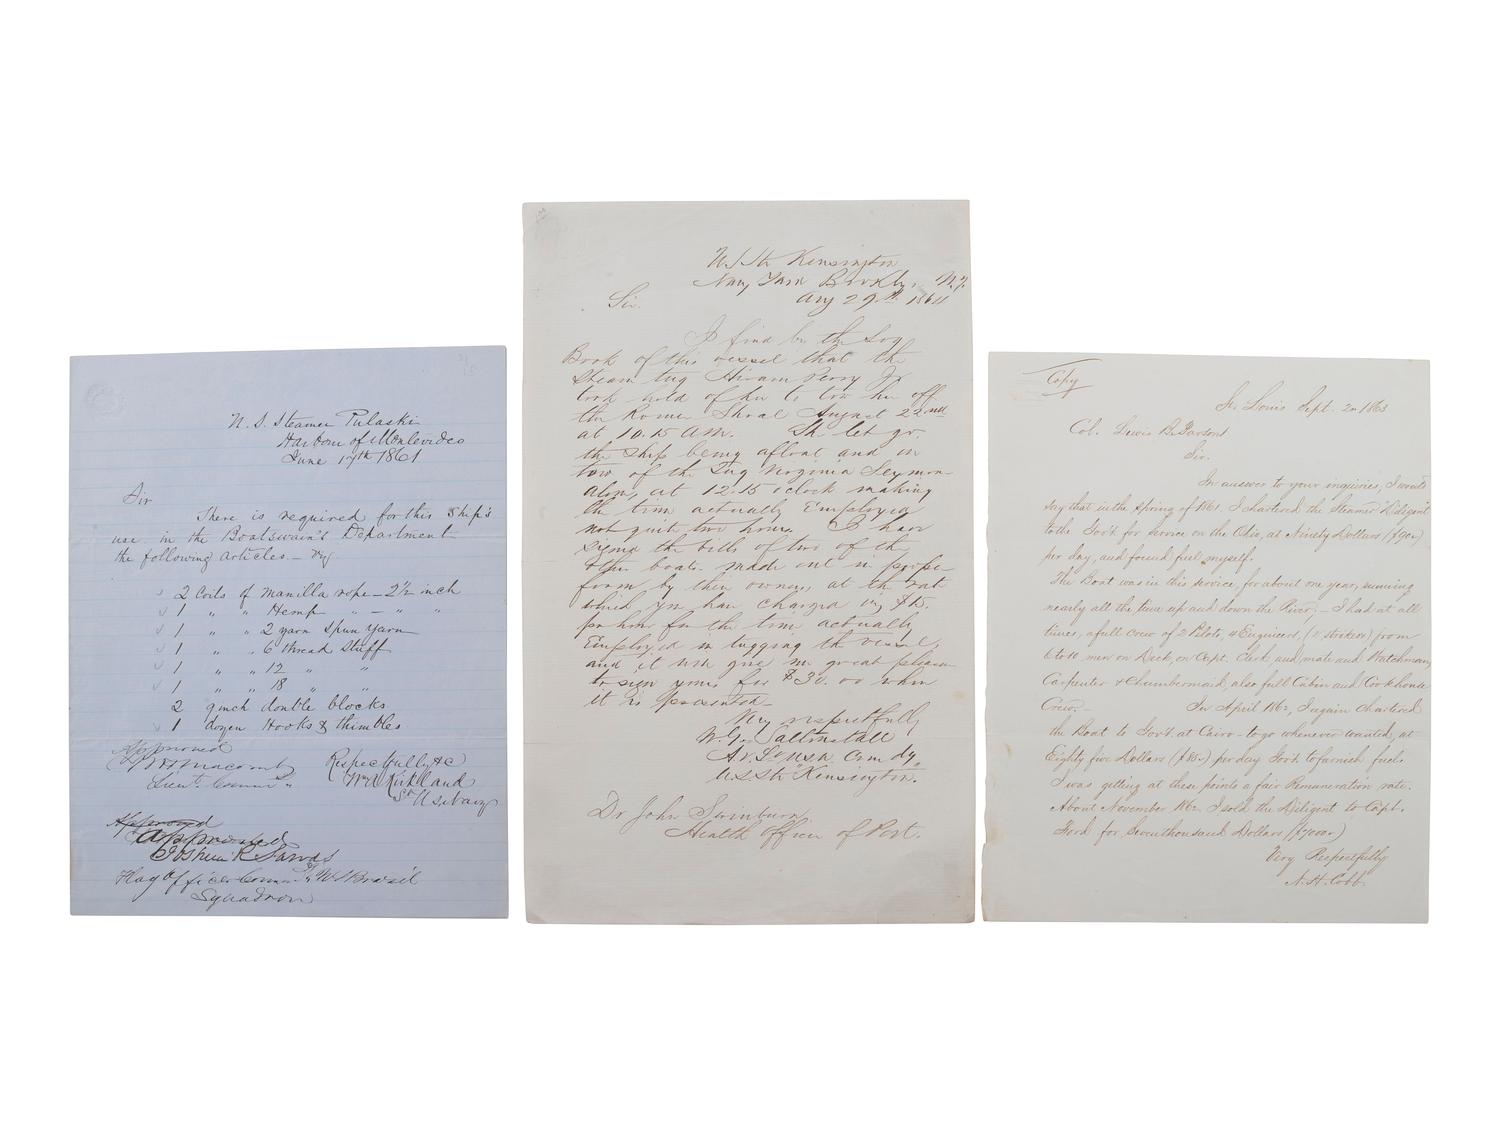 U. S. Steamer Pulaski
Harbour of Montevideo
June 17th 1861
Sir
There is required for this Ship's
use in the Boatswain's Department
the following articles. — viz
2 Coils of manilla rope — 2½ inch
1 " " Hemp " — " "
1 " " 2 yarn Spun Yarn
1 " " 6 thread Stuff
1 " " 12 " "
1 " " 18 " "
2 9 inch double blocks
1 dozen Hooks & thimbles
Approved
Macomb
Lieut. Comm'
Respectfully &c
Wm Kirkland
U S Navy
Approved
Approved
Joshua R Sands
Flag Officer Brasil
Squadron
U S Str Kensington
Navy Yard Brooklyn N.Y.
Aug 29th 1864
Sir.
I find by the Log
Book of this vessel that the
Steam tug Hiram Perry Jr
took hold of her to tow her off
the Romer Shoal August 22nd
at 10.15 A.M. She let go.
the ship being afloat and in
tow of the Tug Virginia Seymour
alone, at 12.15 o'clock making
the time actually Employed
not quite two hours. I have
signed the bills of two of the
other boats made out in proper
form by their owners, at the rate
which you have charged viz $15.
per hour for the time actually
Employed in tugging the vessel,
and it will give me great pleasure
to sign yours for $30.00 when
it is presented—
Very respectfully
W. G. Saltonstall
Av. Lt. USN Com dg
U.S. Str "Kensington".
Dr John Swinburn
Health Officer of Port.
Copy
St. Louis Sept. 2n 1863
Col. Lewis B. Parsons
Sir.
In answer to your inquiries, I would
say that in the Spring of 1861 I chartered the Steamer "Diligent"
to the Gov't for service on the Ohio, at Ninety Dollars ($90.00)
per day, and found fuel myself.
The Boat was in this service, for about one year, running
nearly all the time up and down the River;— I had at all
times, a full crew of 2 Pilots, 4 Engineers, (2 strikers) from
6 to 10 men on Deck, on Capt. Clerk, and mate and Watchman,
Carpenter & Chambermaid, also full Cabin and Cook house
Crew.— In April 1862, I again Chartered
the Boat to Gov't. at Cairo — to go whenever wanted, at
Eighty five Dollars ($85.00) per day Gov't. to furnish fuel.
I was getting at these points a fair Remuneration rate.
About November 1862 I sold the Diligent to Capt.
Ford for Seven thousand Dollars ($7000.00)
Very Respectfully
N. H. Cobb.